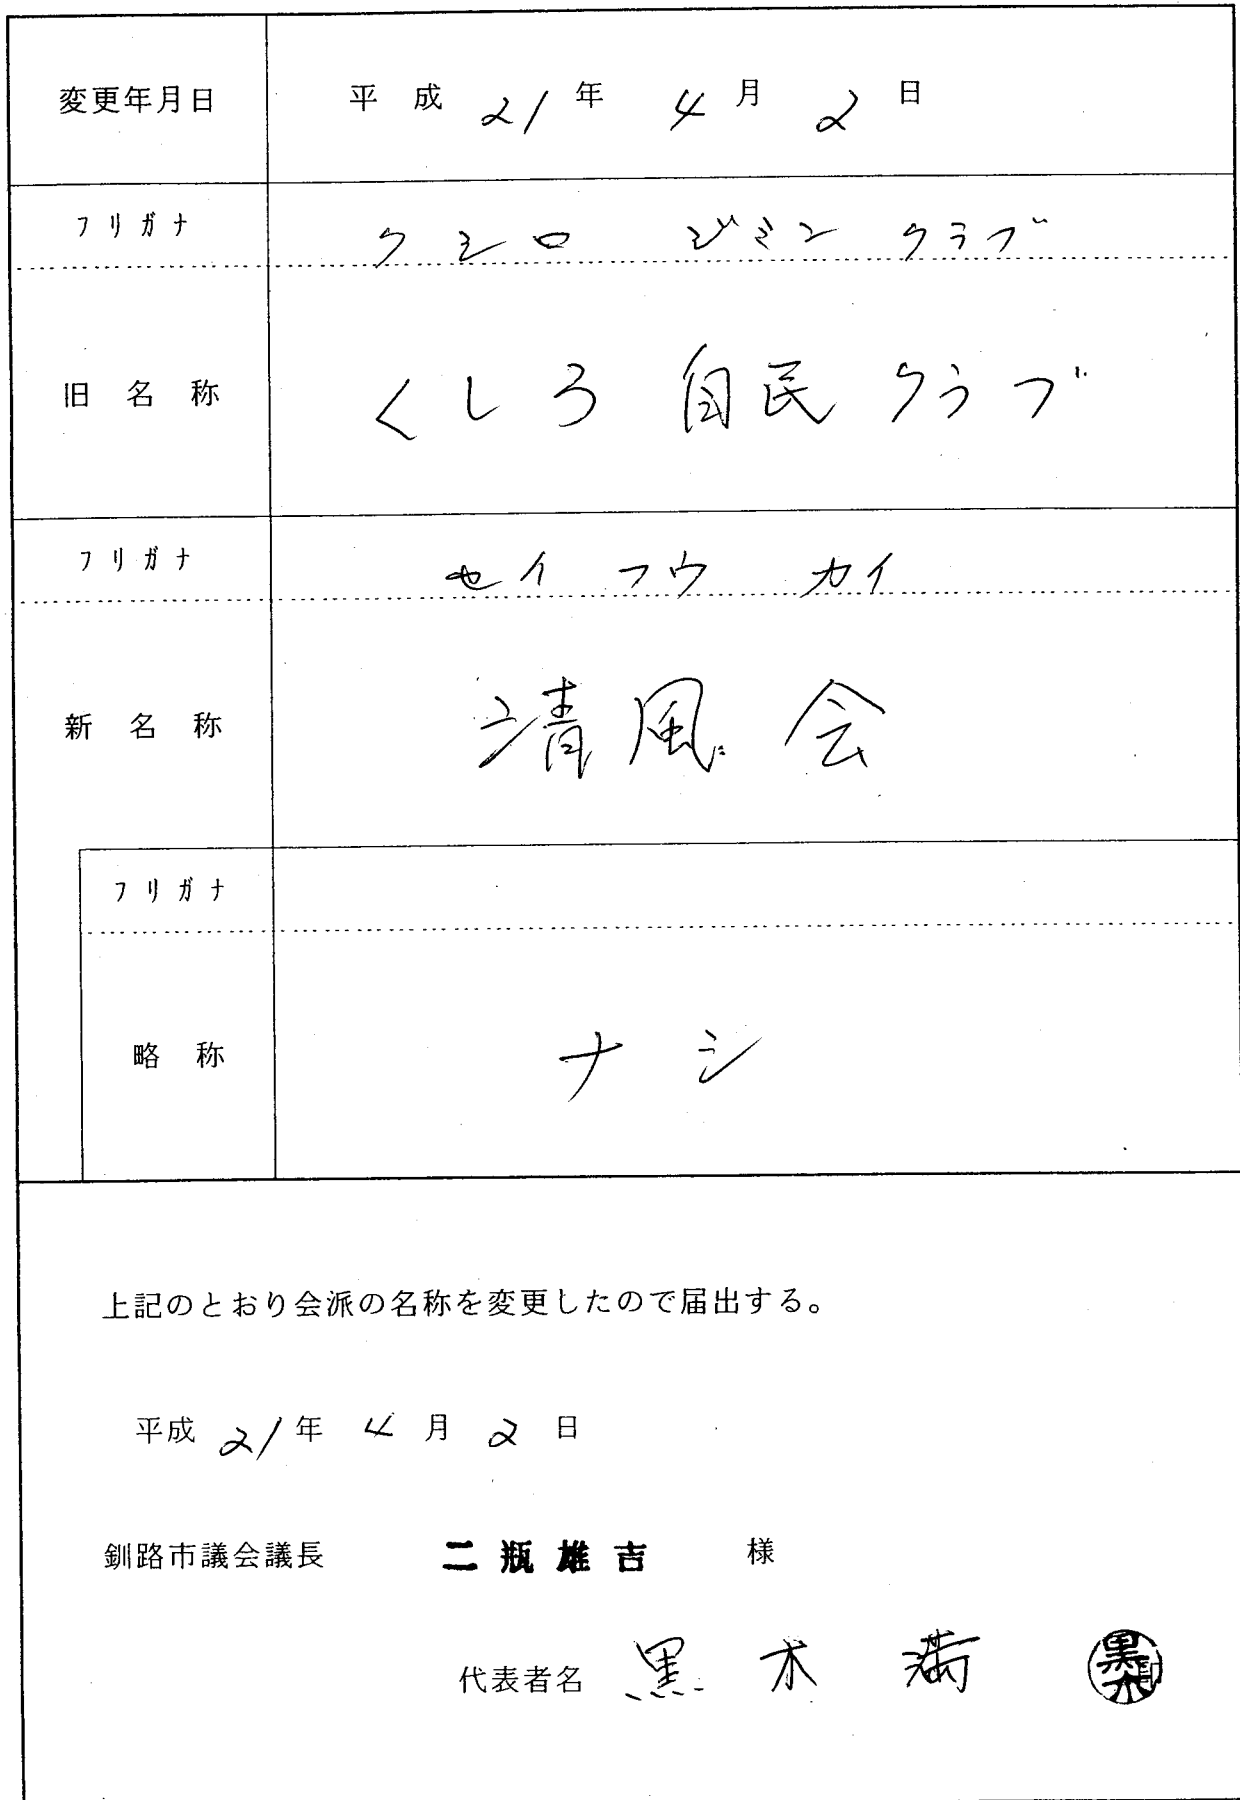 変更年月日 平成 21 年 4 月 2 日
フリガナ クシロ ジミン クラブ
旧名称 くしろ 自民 クラブ
フリガナ セイ フウ カイ
新名称 清風会
フリガナ
略称 ナシ
上記のとおり会派の名称を変更したので届出する。
平成 21 年 4 月 2 日
釧路市議会議長 二瓶雄吉 様
代表者名 黒木満 黒木 印